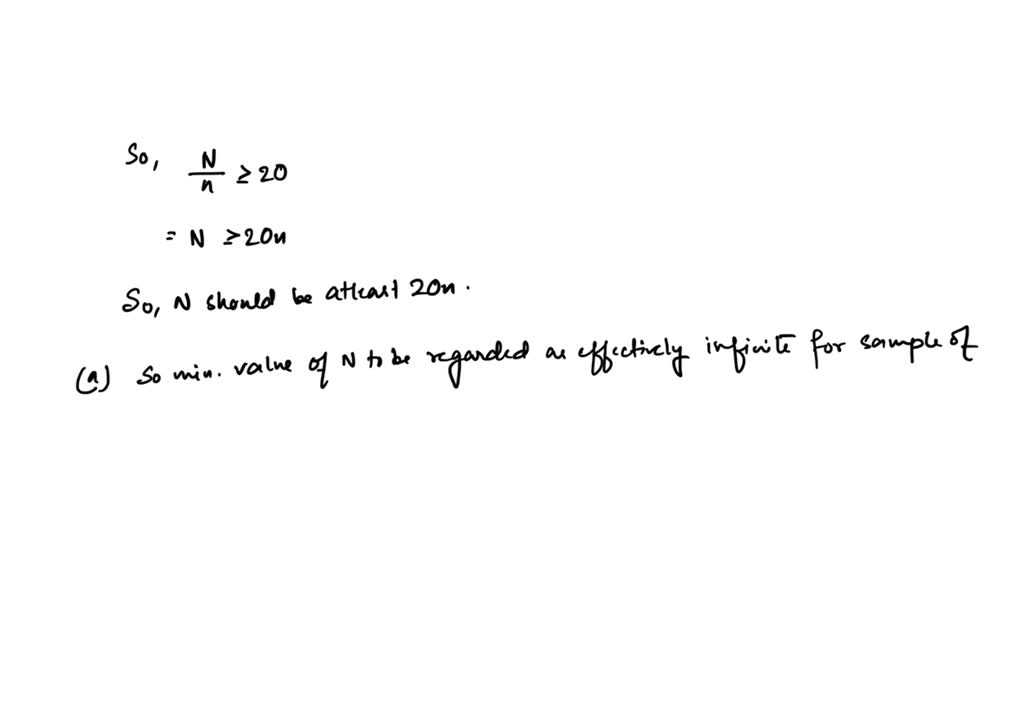 So, N/n ≥ 20
= N ≥ 20n
So, N should be atleast 20n.
(a) So min. value of N to be regarded as effectively infinite for sample of